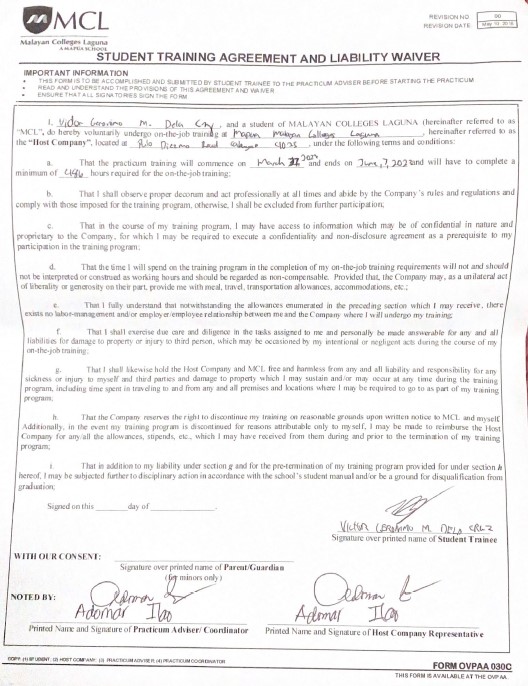 MCL
Malayan Colleges Laguna
A MAPUA SCHOOL
REVISION NO. 00
REVISION DATE: May 10, 2016
STUDENT TRAINING AGREEMENT AND LIABILITY WAIVER
IMPORTANT INFORMATION
• THIS FORM IS TO BE ACCOMPLISHED AND SUBMITTED BY STUDENT TRAINEE TO THE PRACTICUM ADVISER BEFORE STARTING THE PRACTICUM
• READ AND UNDERSTAND THE PROVISIONS OF THIS AGREEMENT AND WAIVER
• ENSURE THAT ALL SIGNATORIES SIGN THE FORM
I, Victor Geronimo M. Dela Cruz, and a student of MALAYAN COLLEGES LAGUNA (hereinafter referred to as
"MCL", do hereby voluntarily undergo on-the-job training at Mapua Malayan Colleges Laguna, hereinafter referred to as
the "Host Company", located at Pulo Diezmo Road 4025, under the following terms and conditions:
a. That the practicum training will commence on March 27, 2023 and ends on June, 7, 2023 and will have to complete a
minimum of 486 hours required for the on-the-job training;
b. That I shall observe proper decorum and act professionally at all times and abide by the Company's rules and regulations and
comply with those imposed for the training program, otherwise, I shall be excluded from further participation;
c. That in the course of my training program, I may have access to information which may be of confidential in nature and
proprietary to the Company, for which I may be required to execute a confidentiality and non-disclosure agreement as a prerequisite to my
participation in the training program;
d. That the time I will spend on the training program in the completion of my on-the-job training requirements will not and should
not be interpreted or construed as working hours and should be regarded as non-compensable. Provided that, the Company may, as a unilateral act
of liberality or generosity on their part, provide me with meal, travel, transportation allowances, accommodations, etc.;
e. That I fully understand that notwithstanding the allowances enumerated in the preceding section which I may receive, there
exists no labor-management and/or employer/employee relationship between me and the Company where I will undergo my training;
f. That I shall exercise due care and diligence in the tasks assigned to me and personally be made answerable for any and all
liabilities for damage to property or injury to third person, which may be occasioned by my intentional or negligent acts during the course of my
on-the-job training;
g. That I shall likewise hold the Host Company and MCL free and harmless from any and all liability and responsibility for any
sickness or injury to myself and third parties and damage to property which I may sustain and/or may occur at any time during the training
program, including time spent in traveling to and from any and all premises and locations where I may be required to go to as part of my training
program;
h. That the Company reserves the right to discontinue my training on reasonable grounds upon written notice to MCL and myself
Additionally, in the event my training program is discontinued for reasons attributable only to myself, I may be made to reimburse the Host
Company for any/all the allowances, stipends, etc., which I may have received from them during and prior to the termination of my training
program;
i. That in addition to my liability under section g and for the pre-termination of my training program provided for under section h
hereof, I may be subjected further to disciplinary action in accordance with the school's student manual and/or be a ground for disqualification from
graduation;
Signed on this day of .
VICTOR GERONIMO M. DELA CRUZ
Signature over printed name of Student Trainee
WITH OUR CONSENT:
Signature over printed name of Parent/Guardian
(for minors only)
NOTED BY:
Adomar Ilao
Adomar Ilao
Printed Name and Signature of Practicum Adviser/ Coordinator
Printed Name and Signature of Host Company Representative
COPY: (1) STUDENT; (2) HOST COMPANY; (3) PRACTICUM ADVISER; (4) PRACTICUM COORDINATOR
FORM OVPAA 030C
THIS FORM IS AVAILABLE AT THE OVPAA.